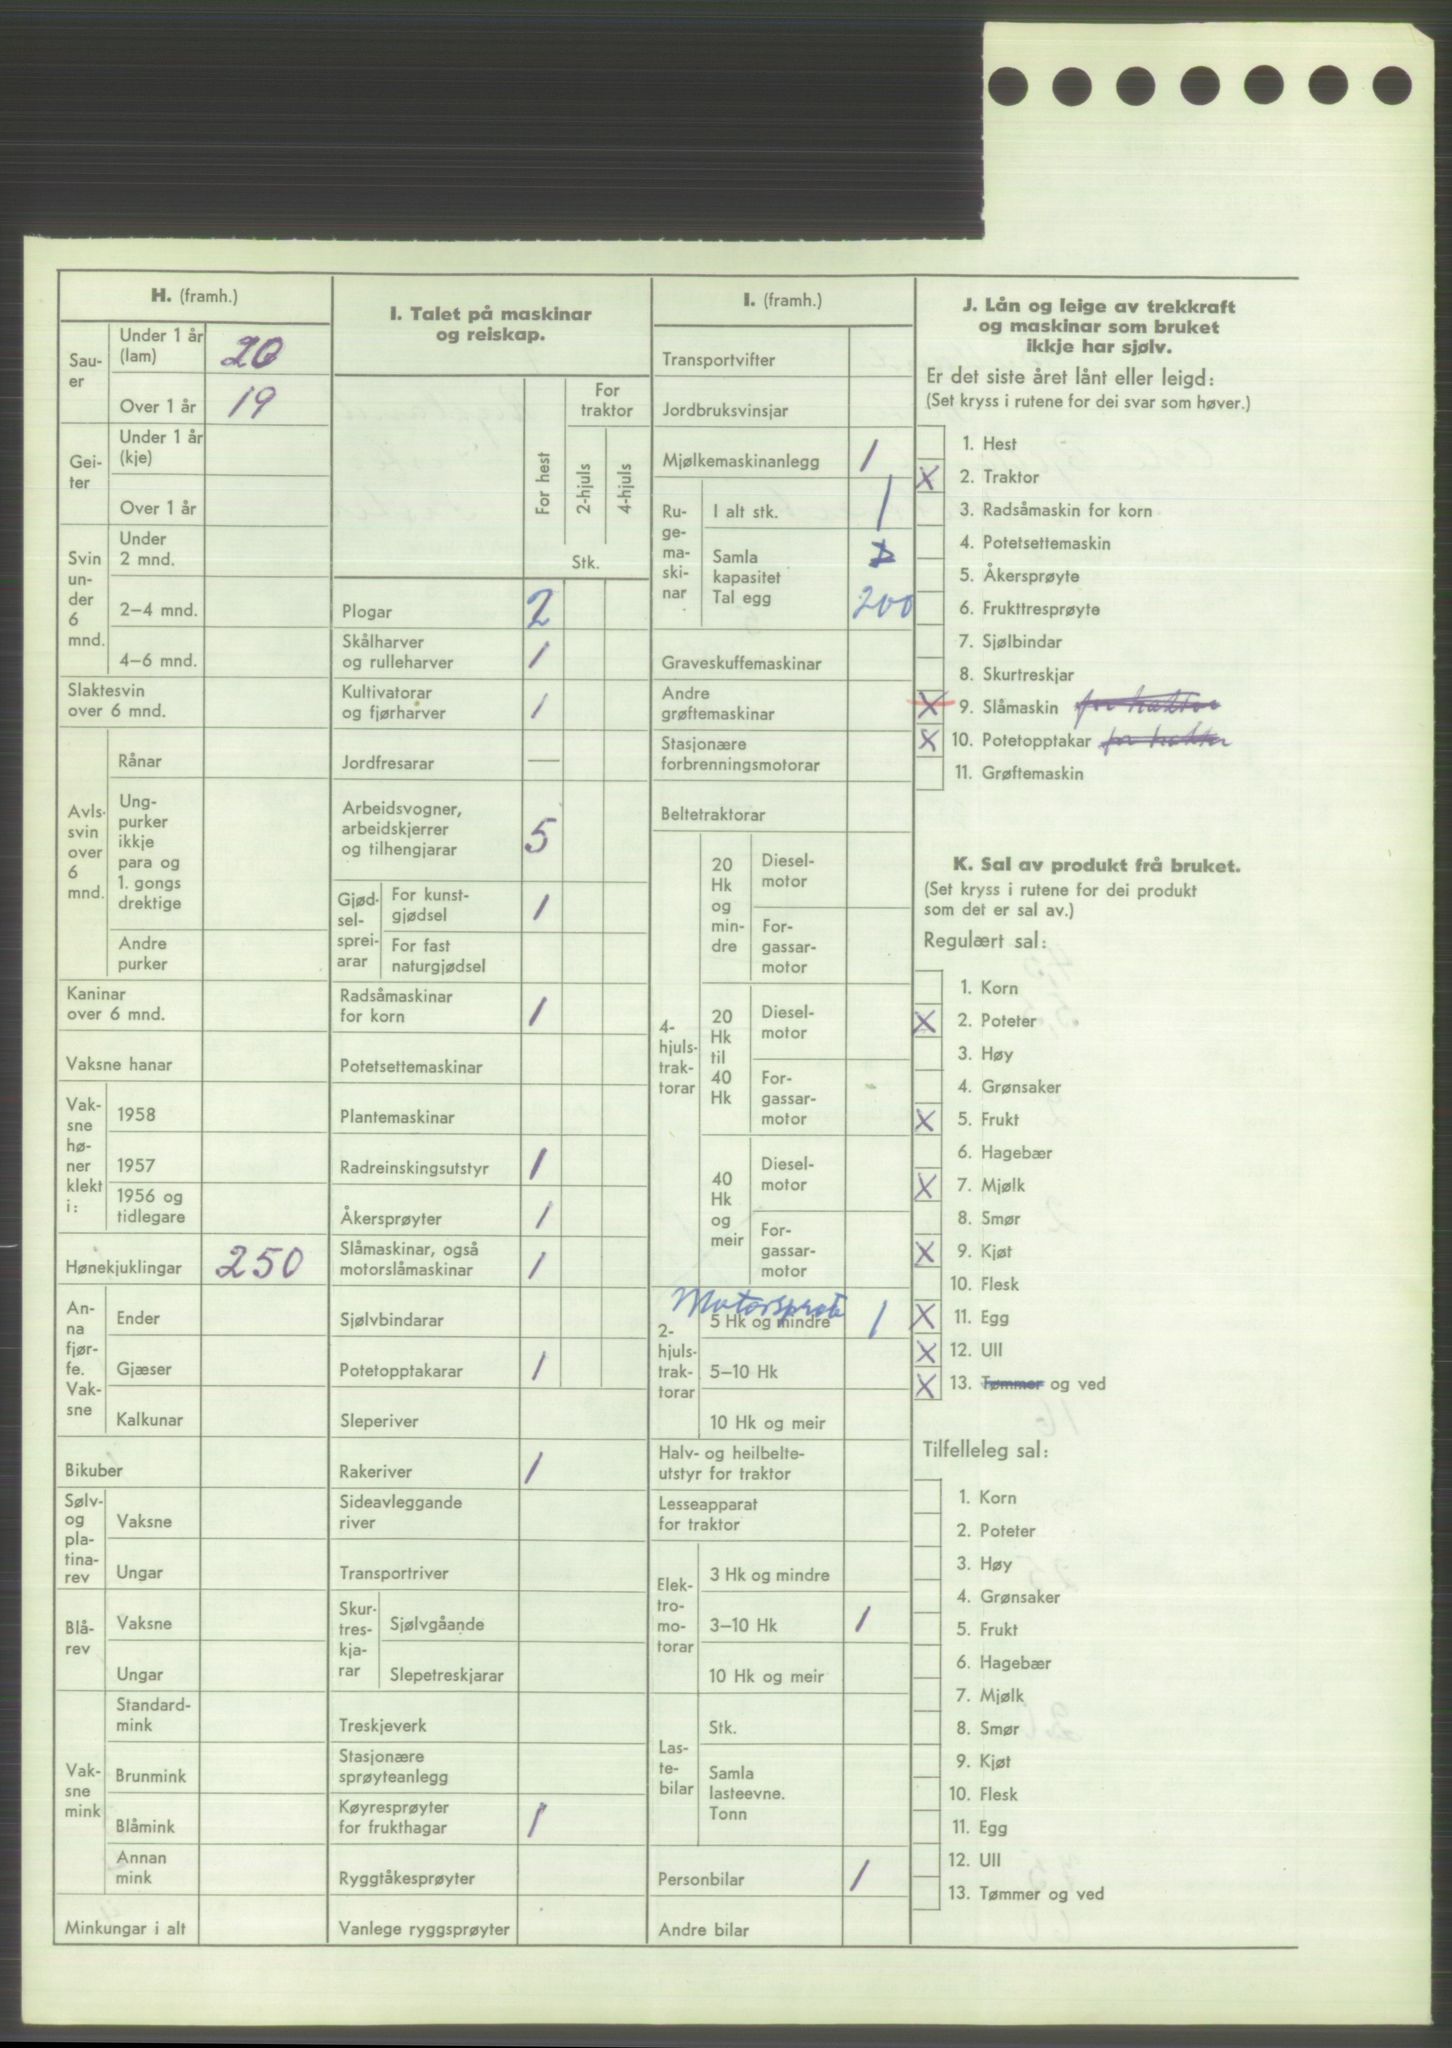 H. (framh.)
Sau-
er
Under 1 år
(lam)
20
Over 1 år
19
Gei-
ter
Under 1 år
(kje)
Over 1 år
Svin
un-
der
6
mnd.
Under
2 mnd.
2–4 mnd.
4–6 mnd.
Slaktesvin
over 6 mnd.
Avls-
svin
over
6
mnd.
Rånar
Ung-
purker
ikkje
para og
1. gongs
drektige
Andre
purker
Kaninar
over 6 mnd.
Vaksne hanar
Vak-
sne
hø-
ner
klekt
i:
1958
1957
1956 og
tidlegare
Hønekjuklingar 250
An-
na
fjør-
fe.
Vak-
sne
Ender
Gjæser
Kalkunar
Bikuber
Sølv-
og
pla-
tina-
rev
Vaksne
Ungar
Blå-
rev
Vaksne
Ungar
Vak-
sne
mink
Standard-
mink
Brunmink
Blåmink
Annan
mink
Minkungar i alt
I. Talet på maskinar
og reiskap.
For hest
For
traktor
2-hjuls
4-hjuls
Stk.
Plogar 2
Skålharver
og rulleharver 1
Kultivatorar
og fjørharver 1
Jordfresarar —
Arbeidsvogner,
arbeidskjerrer
og tilhengjarar 5
Gjød-
sel-
sprei-
arar
For kunst-
gjødsel 1
For fast
naturgjødsel
Radsåmaskinar
for korn 1
Potetsettemaskinar
Plantemaskinar
Radreinskingsutstyr 1
Åkersprøyter 1
Slåmaskinar, også
motorslåmaskinar 1
Sjølvbindarar
Potetopptakarar 1
Sleperiver
Rakeriver 1
Sideavleggande
river
Transportriver
Skur-
tres-
kja-
rar
Sjølvgåande
Slepetreskjarar
Treskjeverk
Stasjonære
sprøyteanlegg
Køyresprøyter
for frukthagar 1
Ryggtåkesprøyter
Vanlege ryggsprøyter
I. (framh.)
Transportvifter
Jordbruksvinsjar
Mjølkemaskinanlegg 1
Ru-
ge-
ma-
ski-
nar
I alt stk. 1
Samla
kapasitet
Tal egg 200
Graveskuffemaskinar
Andre
grøftemaskinar
Stasjonære
forbrenningsmotorar
Beltetraktorar
4-
hjuls-
trak-
torar
20
Hk
og
min-
dre
Diesel-
motor
For-
gassar-
motor
20
Hk
til
40
Hk
Diesel-
motor
For-
gassar-
motor
40
Hk
og
meir
Diesel-
motor
For-
gassar-
motor
2-
hjuls-
trak-
torar
5 Hk og mindre 1
5–10 Hk
10 Hk og meir
Halv- og heilbelte-
utstyr for traktor
Lesseapparat
for traktor
Elek-
tro-
mo-
torar
3 Hk og mindre
3–10 Hk 1
10 Hk og meir
Las-
te-
bilar
Stk.
Samla
lasteevne.
Tonn
Personbilar 1
Andre bilar
J. Lån og leige av trekkraft
og maskinar som bruket
ikkje har sjølv.
Er det siste året lånt eller leigd:
(Set kryss i rutene for dei svar som høver.)
1. Hest
X 2. Traktor
3. Radsåmaskin for korn
4. Potetsettemaskin
5. Åkersprøyte
6. Frukttresprøyte
7. Sjølbindar
8. Skurtreskjar
X 9. Slåmaskin for traktor
X 10. Potetopptakar for traktor
11. Grøftemaskin
K. Sal av produkt frå bruket.
(Set kryss i rutene for dei produkt
som det er sal av.)
Regulært sal:
1. Korn
X 2. Poteter
3. Høy
4. Grønsaker
X 5. Frukt
6. Hagebær
X 7. Mjølk
8. Smør
X 9. Kjøt
10. Flesk
X 11. Egg
X 12. Ull
X 13. Tømmer og ved
Tilfelleleg sal:
1. Korn
2. Poteter
3. Høy
4. Grønsaker
5. Frukt
6. Hagebær
7. Mjølk
8. Smør
9. Kjøt
10. Flesk
11. Egg
12. Ull
13. Tømmer og ved